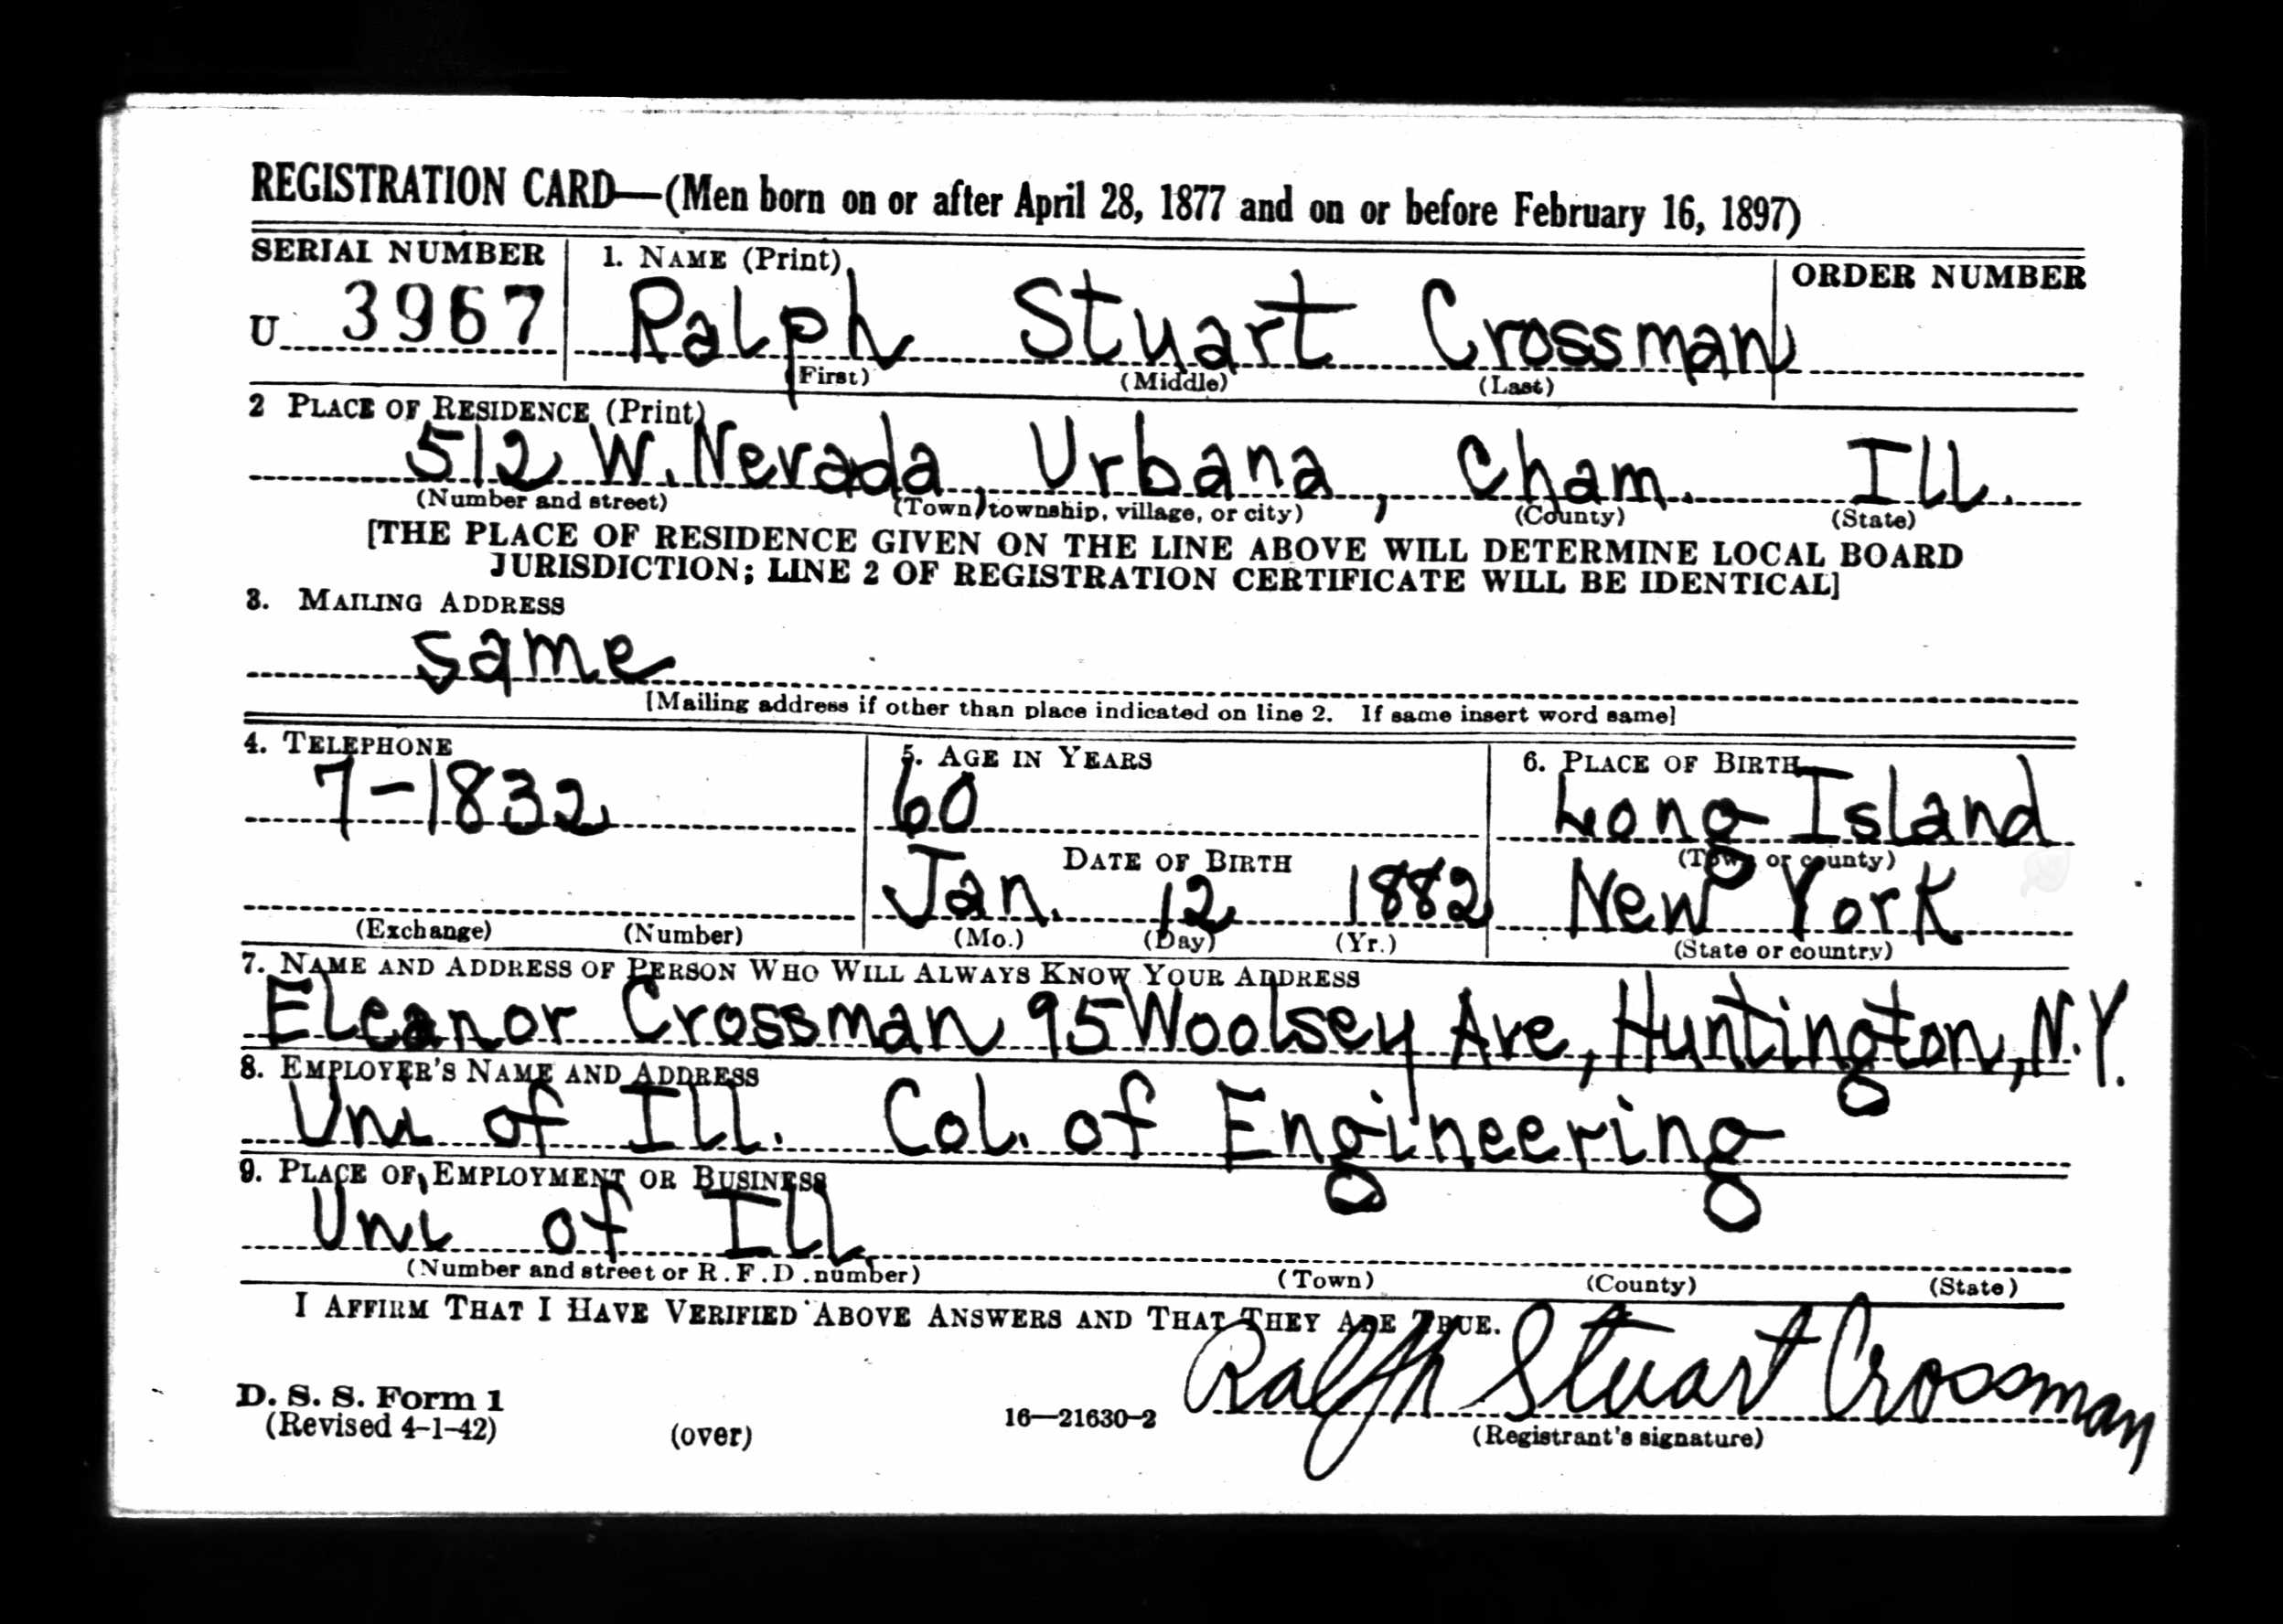 REGISTRATION CARD—(Men born on or after April 28, 1877 and on or before February 16, 1897)
SERIAL NUMBER 1. NAME (Print) ORDER NUMBER
U 3967 Ralph Stuart Crossman
(First) (Middle) (Last)
2 PLACE OF RESIDENCE (Print)
512 W. Nevada, Urbana, Cham. Ill.
(Number and street) (Town, township, village, or city) (County) (State)
[THE PLACE OF RESIDENCE GIVEN ON THE LINE ABOVE WILL DETERMINE LOCAL BOARD
JURISDICTION; LINE 2 OF REGISTRATION CERTIFICATE WILL BE IDENTICAL]
3. MAILING ADDRESS
same
[Mailing address if other than place indicated on line 2. If same insert word same]
4. TELEPHONE 5. AGE IN YEARS 6. PLACE OF BIRTH
7-1832 60 Long Island
DATE OF BIRTH (Town or county)
Jan. 12 1882 New York
(Exchange) (Number) (Mo.) (Day) (Yr.) (State or country)
7. NAME AND ADDRESS OF PERSON WHO WILL ALWAYS KNOW YOUR ADDRESS
Eleanor Crossman 95 Woolsey Ave, Huntington, N.Y.
8. EMPLOYER'S NAME AND ADDRESS
Uni of Ill. Col. of Engineering
9. PLACE OF EMPLOYMENT OR BUSINESS
Uni of Ill
(Number and street or R.F.D. number) (Town) (County) (State)
I AFFIRM THAT I HAVE VERIFIED ABOVE ANSWERS AND THAT THEY ARE TRUE.
Ralph Stuart Crossman
D. S. S. Form 1
(Revised 4-1-42) (over) 16—21630-2 (Registrant's signature)